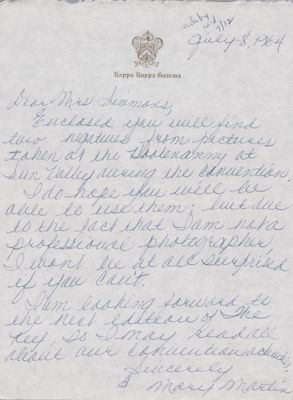 7/12
July 8, 1964
Kappa Kappa Gamma
Dear Mrs. Simmons,
Enclosed you will find
two negatives from pictures
taken at the Hootenanny at
Sun Valley during the convention.
I do hope you will be
able to use them; but due
to the fact that I am not a
professional photographer,
I won't be at all surprised
if you can't.
I am looking forward to
the next edition of The
Key, so I may read all
about our convention activities.
Sincerely
Mary Martin